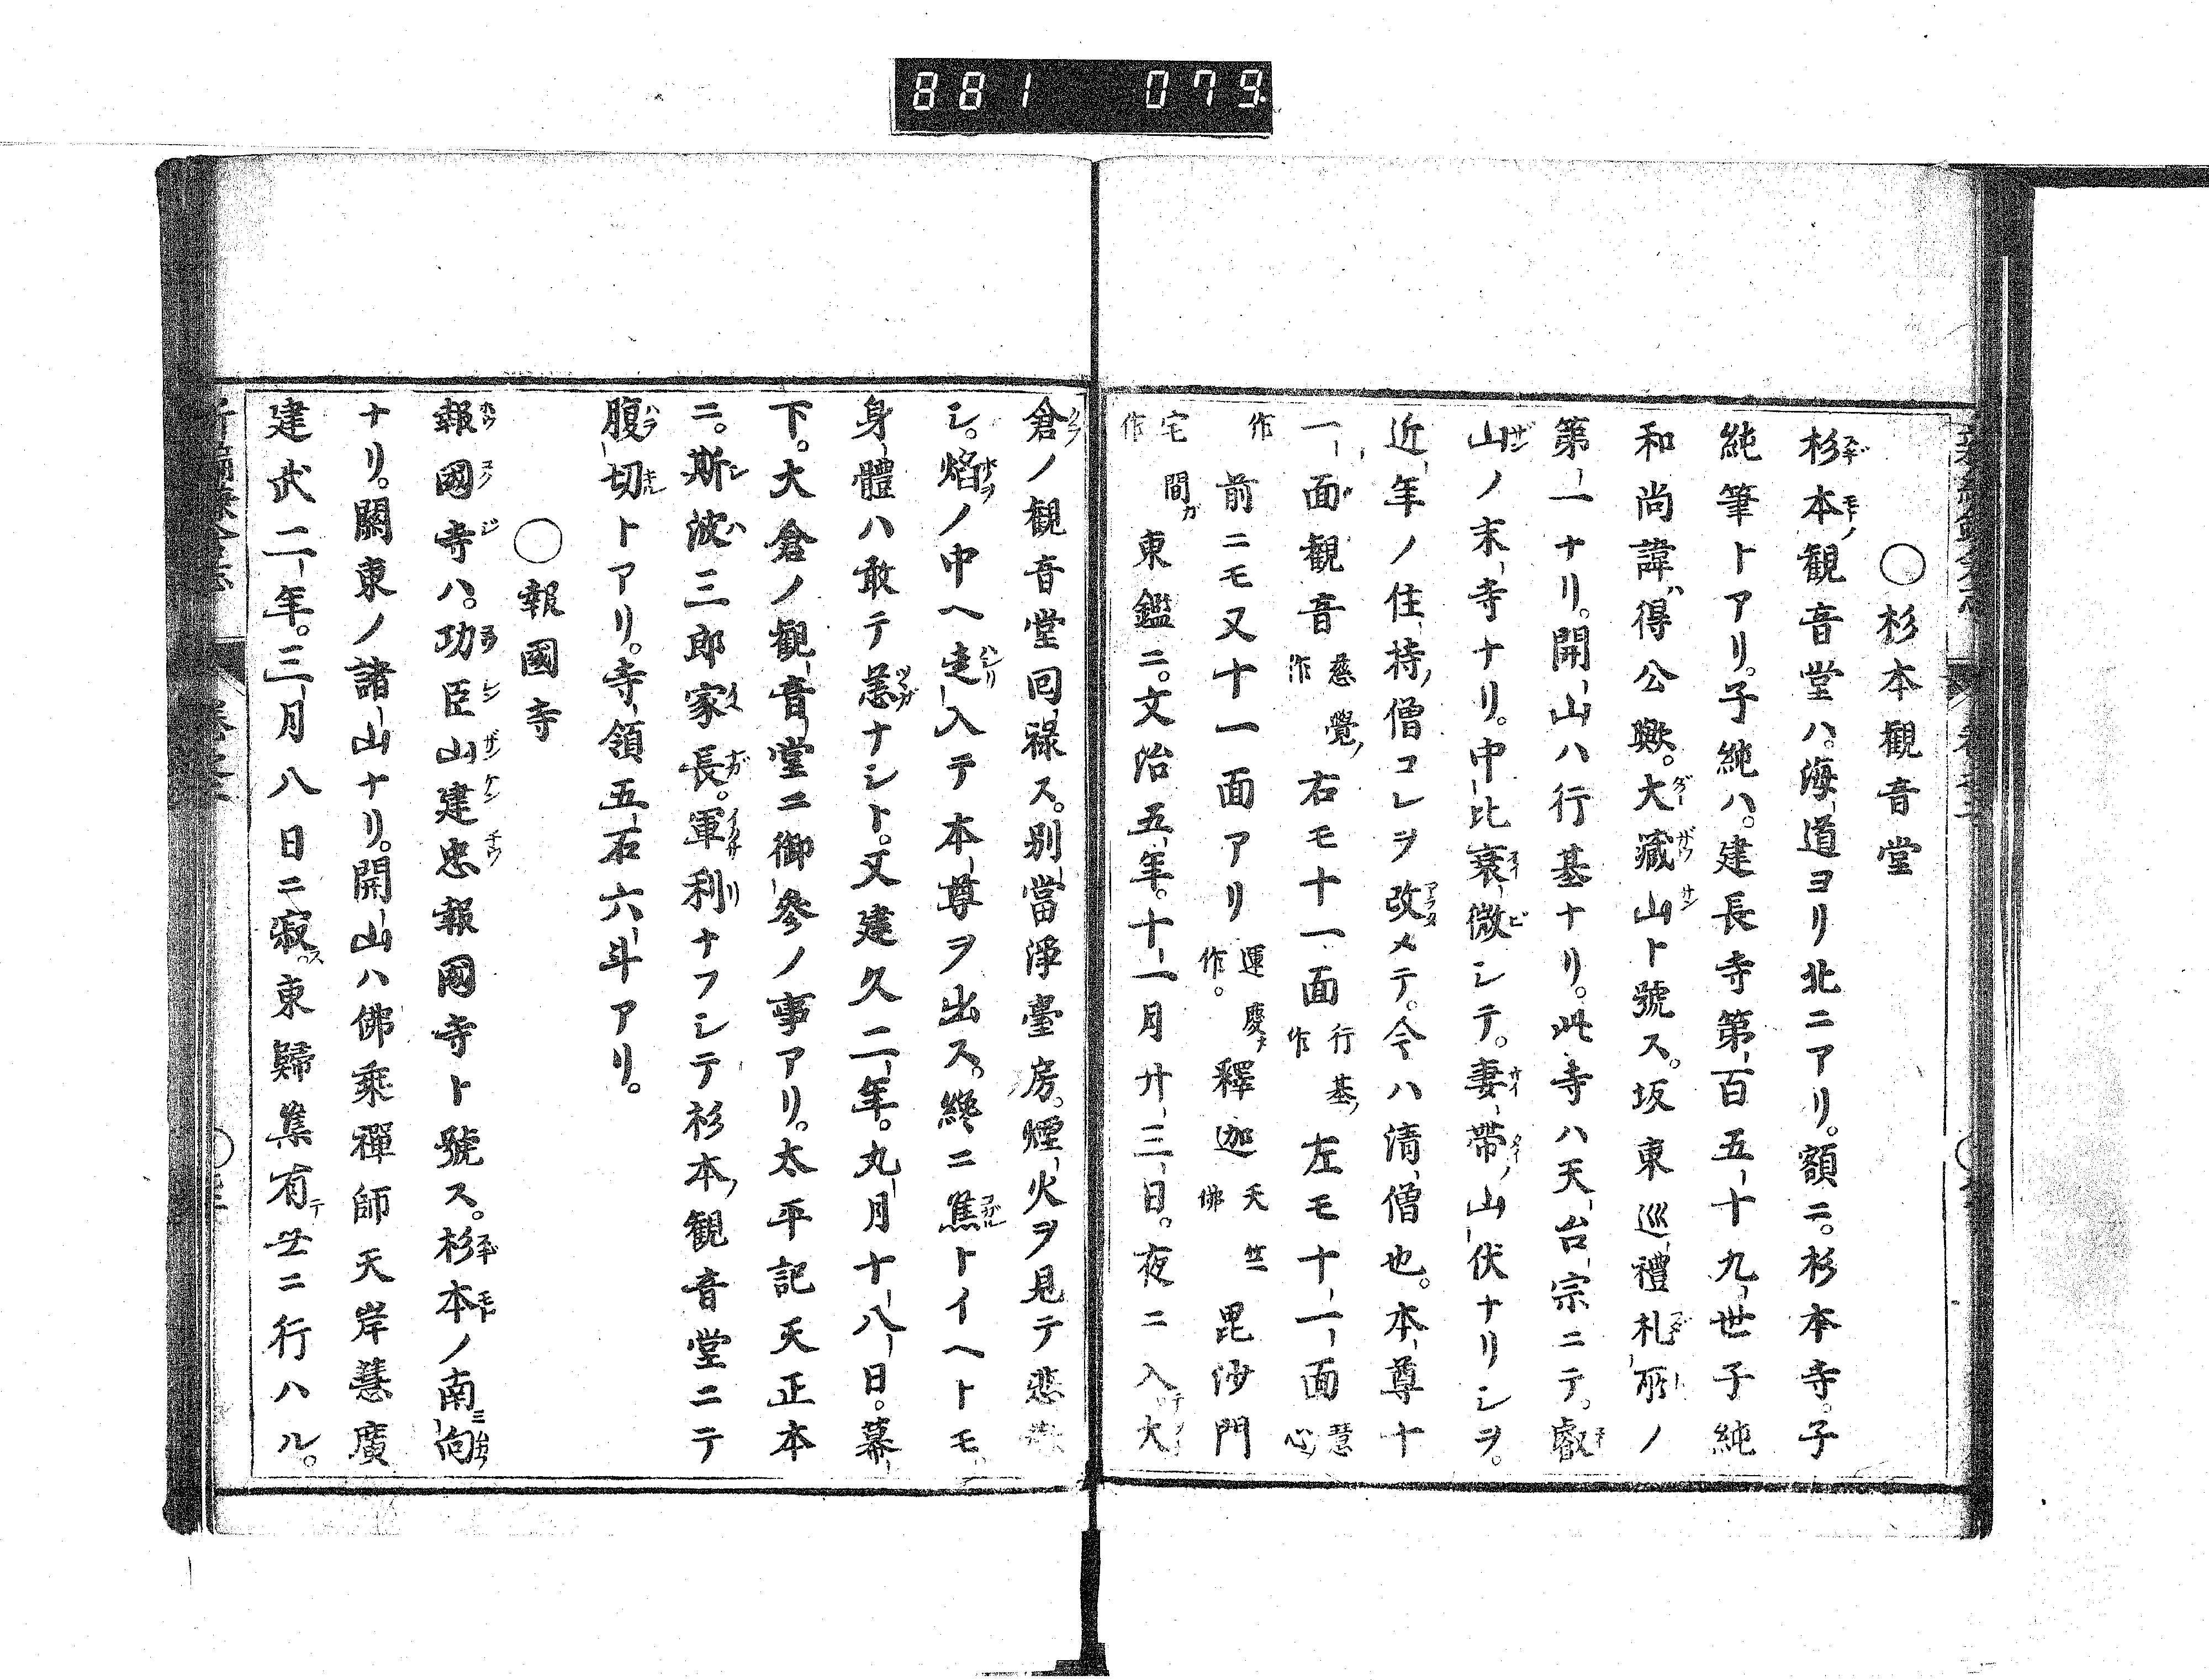 881 079
○杉本觀音堂
杉本觀音堂ハ。海道ヨリ北ニアリ。額ニ。杉本寺。子
純筆トアリ。子純ハ。建長寺第百五十九世子純
和尚諱ハ得公歟。大藏山ト號ス。坂東巡禮札所ノ
第一ナリ。開山ハ行基ナリ。此寺ハ天台宗ニテ。叡
山ノ末寺ナリ。中比衰微シテ。妻帶ノ山伏ナリシヲ。
近年ノ住持ノ僧コレヲ改メテ。今ハ清僧也。本尊十
一面觀音慈覺ノ作右モ十一面行基ノ作左モ十一面慧心
作前ニモ又十一面アリ運慶カ作。釋迦天竺佛毘沙門
宅間カ作東鑑ニ。文治五年。十一月廿三日。夜ニ入テ大
倉ノ觀音堂回祿ス。別當淨臺房。煙火ヲ見テ悲
シ。焰ノ中ヘ走入テ本尊ヲ出ス。終ニ焦トイヘトモ。
身體ハ敢テ恙ナシト。又建久二年。九月十八日。幕
下。大倉ノ觀音堂ニ御參ノ事アリ。太平記天正本
ニ。斯波三郎家長。軍利ナフシテ杉本ノ觀音堂ニテ
腹切トアリ。寺領五石六斗アリ。
○報國寺
報國寺ハ。功臣山建忠報國寺ト號ス。杉本ノ南向
ナリ。關東ノ諸山ナリ。開山ハ佛乘禪師天岸慧廣
建武二年。三月八日ニ寂ス。東歸集有テ世ニ行ハル。